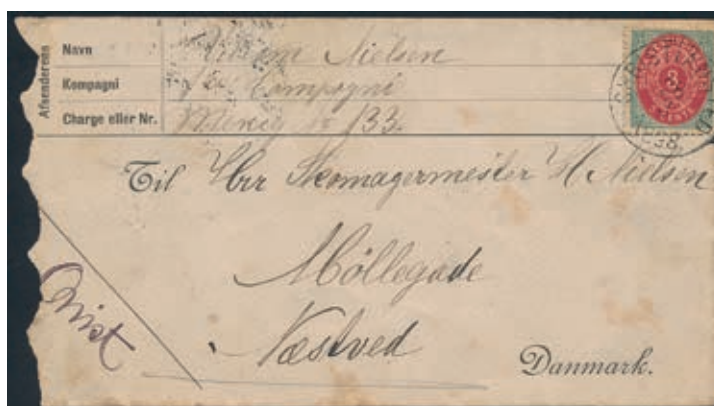 Afsenderens
Navn Nielsen
Kompagni Compagni
Charge eller Nr. Menig 133.
3
CENTS
1898.
Til Hrr Skomagermester H. Nielsen
Möllegade
Næstved
Danmark.